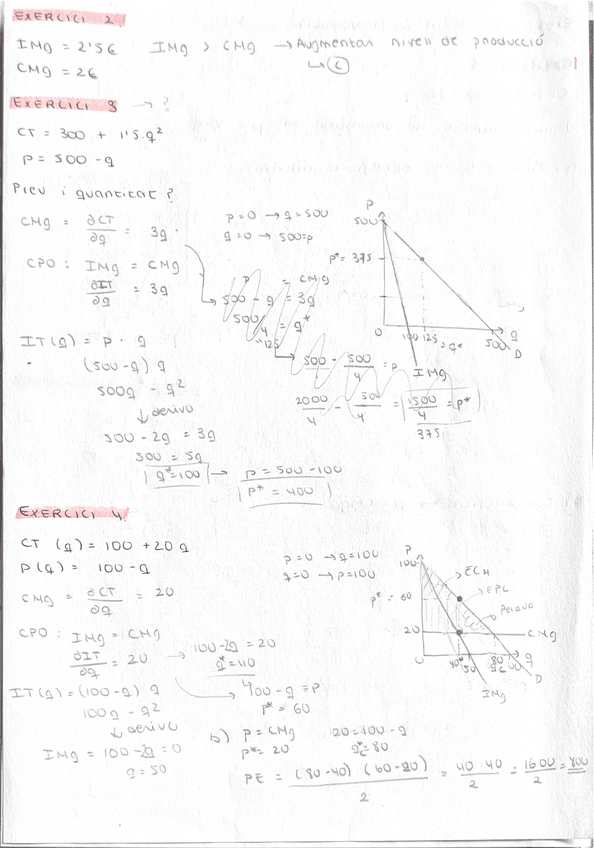 EXERCICI 2
IMg = 2'5€ IMg > CMg → Augmentar nivell de producció
CMg = 2€ ↳ (c)
EXERCICI 3 → ?
CT = 300 + 1'5·q²
p = 500 - q
Preu i quantitat ?
CMg = ∂CT/∂q = 3q
p=0 → q=500
q=0 → 500=p
CPO : IMg = CMg
∂IT/∂q = 3q
p = CMg
500 - q = 3q
500/4 = q*
=125
500 - 500/4 = p
2000/4 - 500/4 = 1500/4 = p*
375
IT(q) = p · q
(500-q) q
500q - q²
↓ derivo
500 - 2q = 3q
500 = 5q
q*=100 → p = 500-100
p* = 400
P
500
p*= 375
0 100 125 500 q
= q*
CMg
IMg
D
EXERCICI 4
CT (q) = 100 + 20 q
P(q) = 100 - q
CMg = ∂CT/∂q = 20
p=0 → q=100
q=0 → p=100
CPO : IMg = CMg
∂IT/∂q = 20 → 100-2q = 20
q*=40
↳ 100 - q = P
p* = 60
IT(q) = (100-q) q
100q - q²
↓ derivo
IMg = 100-2q = 0
q = 50
P
100
p* = 60
20
0 40 50 80 100 q
qc
ECM
EPL
Pèrdua
CMg
IMg
D
b) p = CMg 20 = 100 - q
p*= 20 q*c = 80
PE = (80-40) (60-20)/2 = 40·40/2 = 1600/2 = 800